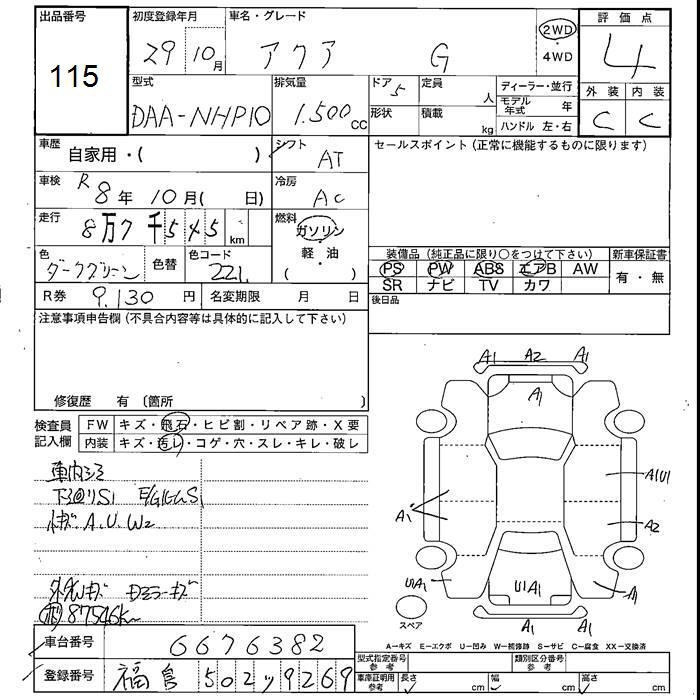 出品番号
115
初度登録年月
29 10月
車名・グレード
アクア G
2WD
・
4WD
評価点
4
外装 内装
C C
型式
DAA-NHP10
排気量
1.500cc
ドア 5
形状
定員 人
積載 kg
ディーラー・並行
モデル年式 年
ハンドル 左・右
車歴
自家用・( )
シフト
AT
セールスポイント(正常に機能するものに限ります)
車検 R8年 10月( 日)
冷房
AC
走行
8万7千545km
燃料
ガソリン
・
軽・油
( )
色
ダークグリーン
色替
色コード
221
装備品(純正品に限り○をつけて下さい)
新車保証書
PS PW ABS エアB AW
SR ナビ TV カワ
有・無
後日品
R券 9.130円
名変期限 月 日
注意事項申告欄(不具合内容等は具体的に記入して下さい)
修復歴 有〔箇所 〕
検査員
記入欄
FW キズ・飛石・ヒビ割・リペア跡・X要
内装 キズ・汚レ・コゲ・穴・スレ・キレ・破レ
車内シミ
下廻りS1
A.U.W2
87546km
A1 A2 A1
A1
A1
A1U1
A2
U1A1
U1A1
A1
A1 A1
スペア
A-キズ E-エクボ U-凹み W-補修跡 S-サビ C-腐食 XX-交換済
車台番号
6676382
登録番号
福島 502 ツ 9269
型式指定番号
参考
類別区分番号
参考
車庫証明用
参考
長さ cm
幅 cm
高さ cm